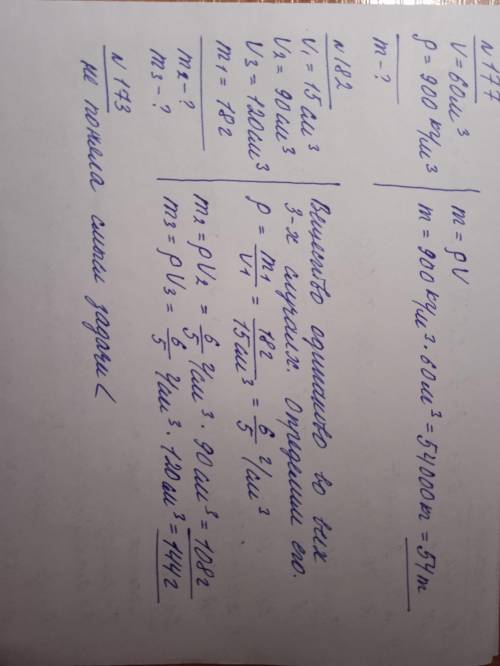 №177
V = 60 м³
ρ = 900 кг/м³
m - ?
m = ρV
m = 900 кг/м³ · 60 м³ = 54000 кг = 54 т
№182
V₁ = 15 см³
V₂ = 90 см³
V₃ = 120 см³
m₁ = 18 г
m₂ - ?
m₃ - ?
Вещество одинаково во всех
3-х случаях. Определим его.
ρ = m₁/V₁ = 18г/15см³ = 6/5 г/см³
m₂ = ρV₂ = 6/5 г/см³ · 90 см³ = 108 г
m₃ = ρV₃ = 6/5 г/см³ · 120 см³ = 144 г
№173
не поняла смысл задачи (